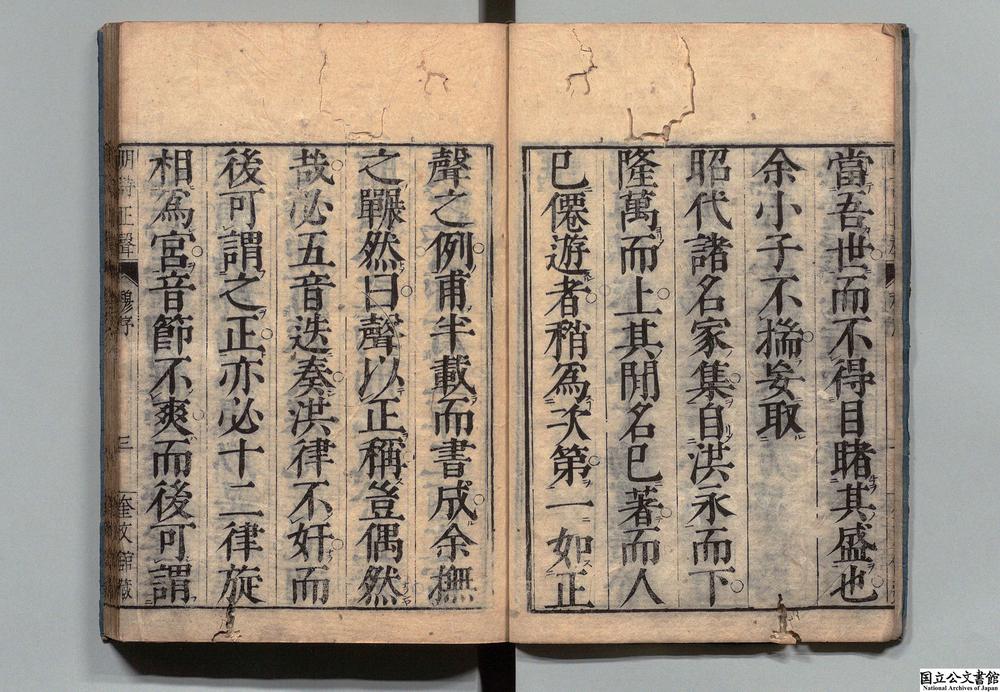 當吾世而不得目睹其盛也
余小子不揣妄取
昭代諸名家集自洪永而下
隆萬而上其聞名已著而人
已僊遊者稍爲次第一如正
聲之例甫半載而書成余撫
之囅然曰聲以正稱豈偶然
哉必五音迭奏洪律不奸而
後可謂之正亦必十二律旋
相爲宮音節不爽而後可謂
明詩正聲
穆序
三
奎文館藏
国立公文書館
National Archives of Japan